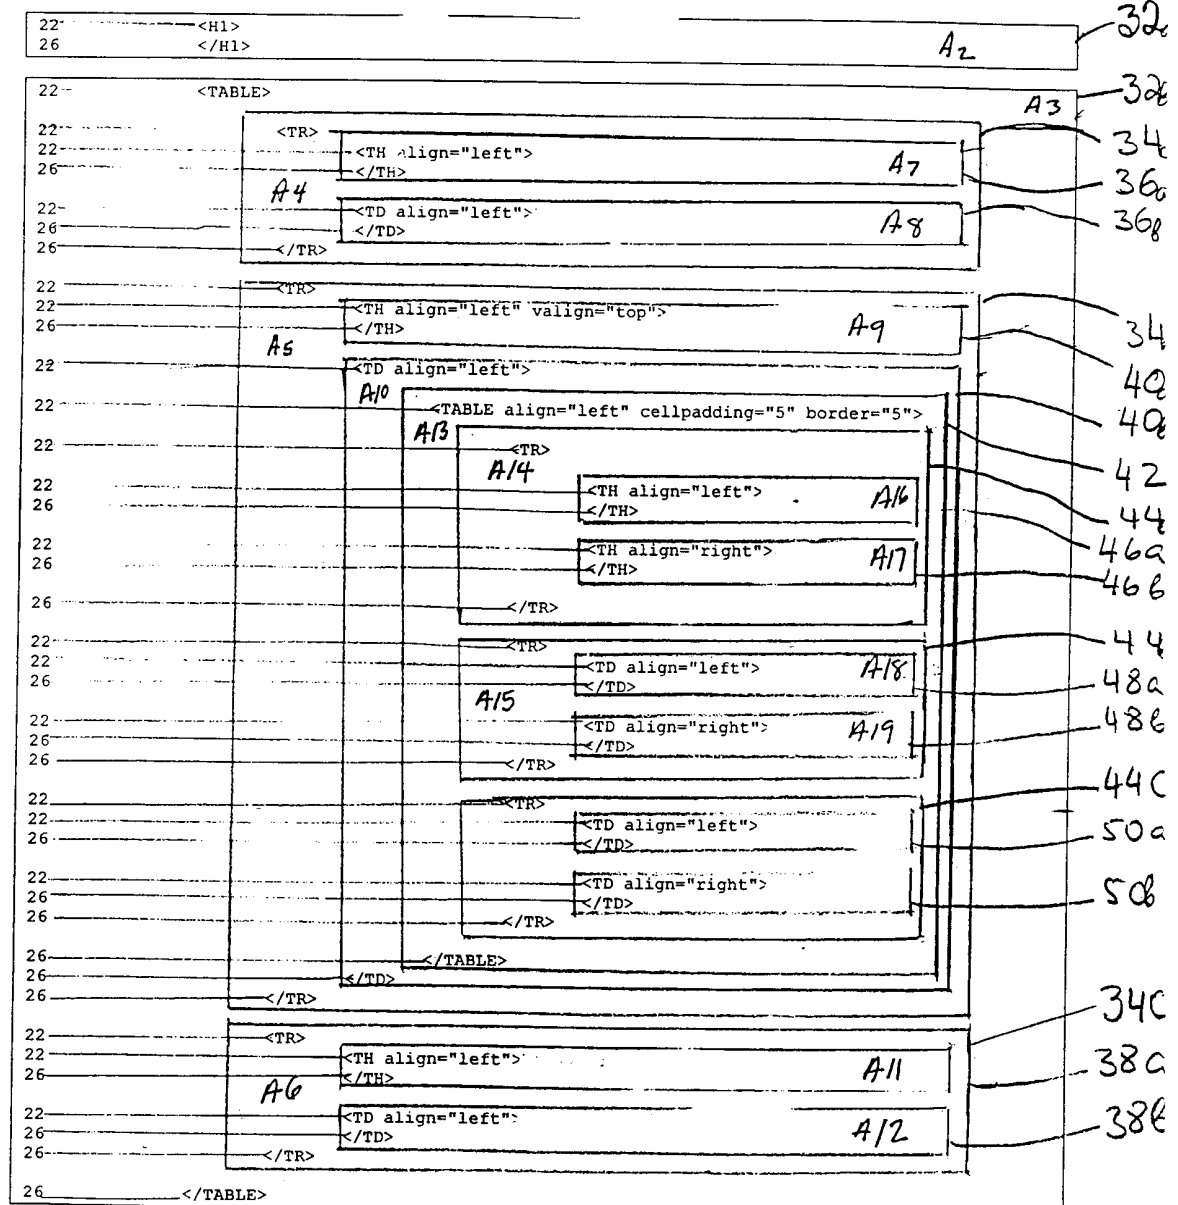 22 <H1> 32
26 </H1> A2
22 <TABLE> 32
A3
22 <TR> 34
22 <TH align="left"> A7
26 </TH> 36a
A4
22 <TD align="left"> A8 36b
26 </TD>
26 </TR>
22 <TR>
22 <TH align="left" valign="top"> A9
26 </TH> 34
A5
22 <TD align="left"> 40
A10
22 <TABLE align="left" cellpadding="5" border="5"> 40
A13
22 <TR>
A14 42
22 <TH align="left"> A16
26 </TH> 44
22 <TH align="right"> A17 46a
26 </TH> 46b
26 </TR>
22 <TR> 44
22 <TD align="left"> A18
26 </TD> 48a
A15
22 <TD align="right"> A19 48b
26 </TD>
26 </TR>
22 <TR> 44C
22 <TD align="left">
26 </TD> 50a
22 <TD align="right"> 50b
26 </TD>
26 </TR>
26 </TABLE>
26 </TD>
26 </TR> 34C
22 <TR>
22 <TH align="left"> A11 38a
26 </TH>
A6
22 <TD align="left"> A12 38b
26 </TD>
26 </TR>
26 </TABLE>